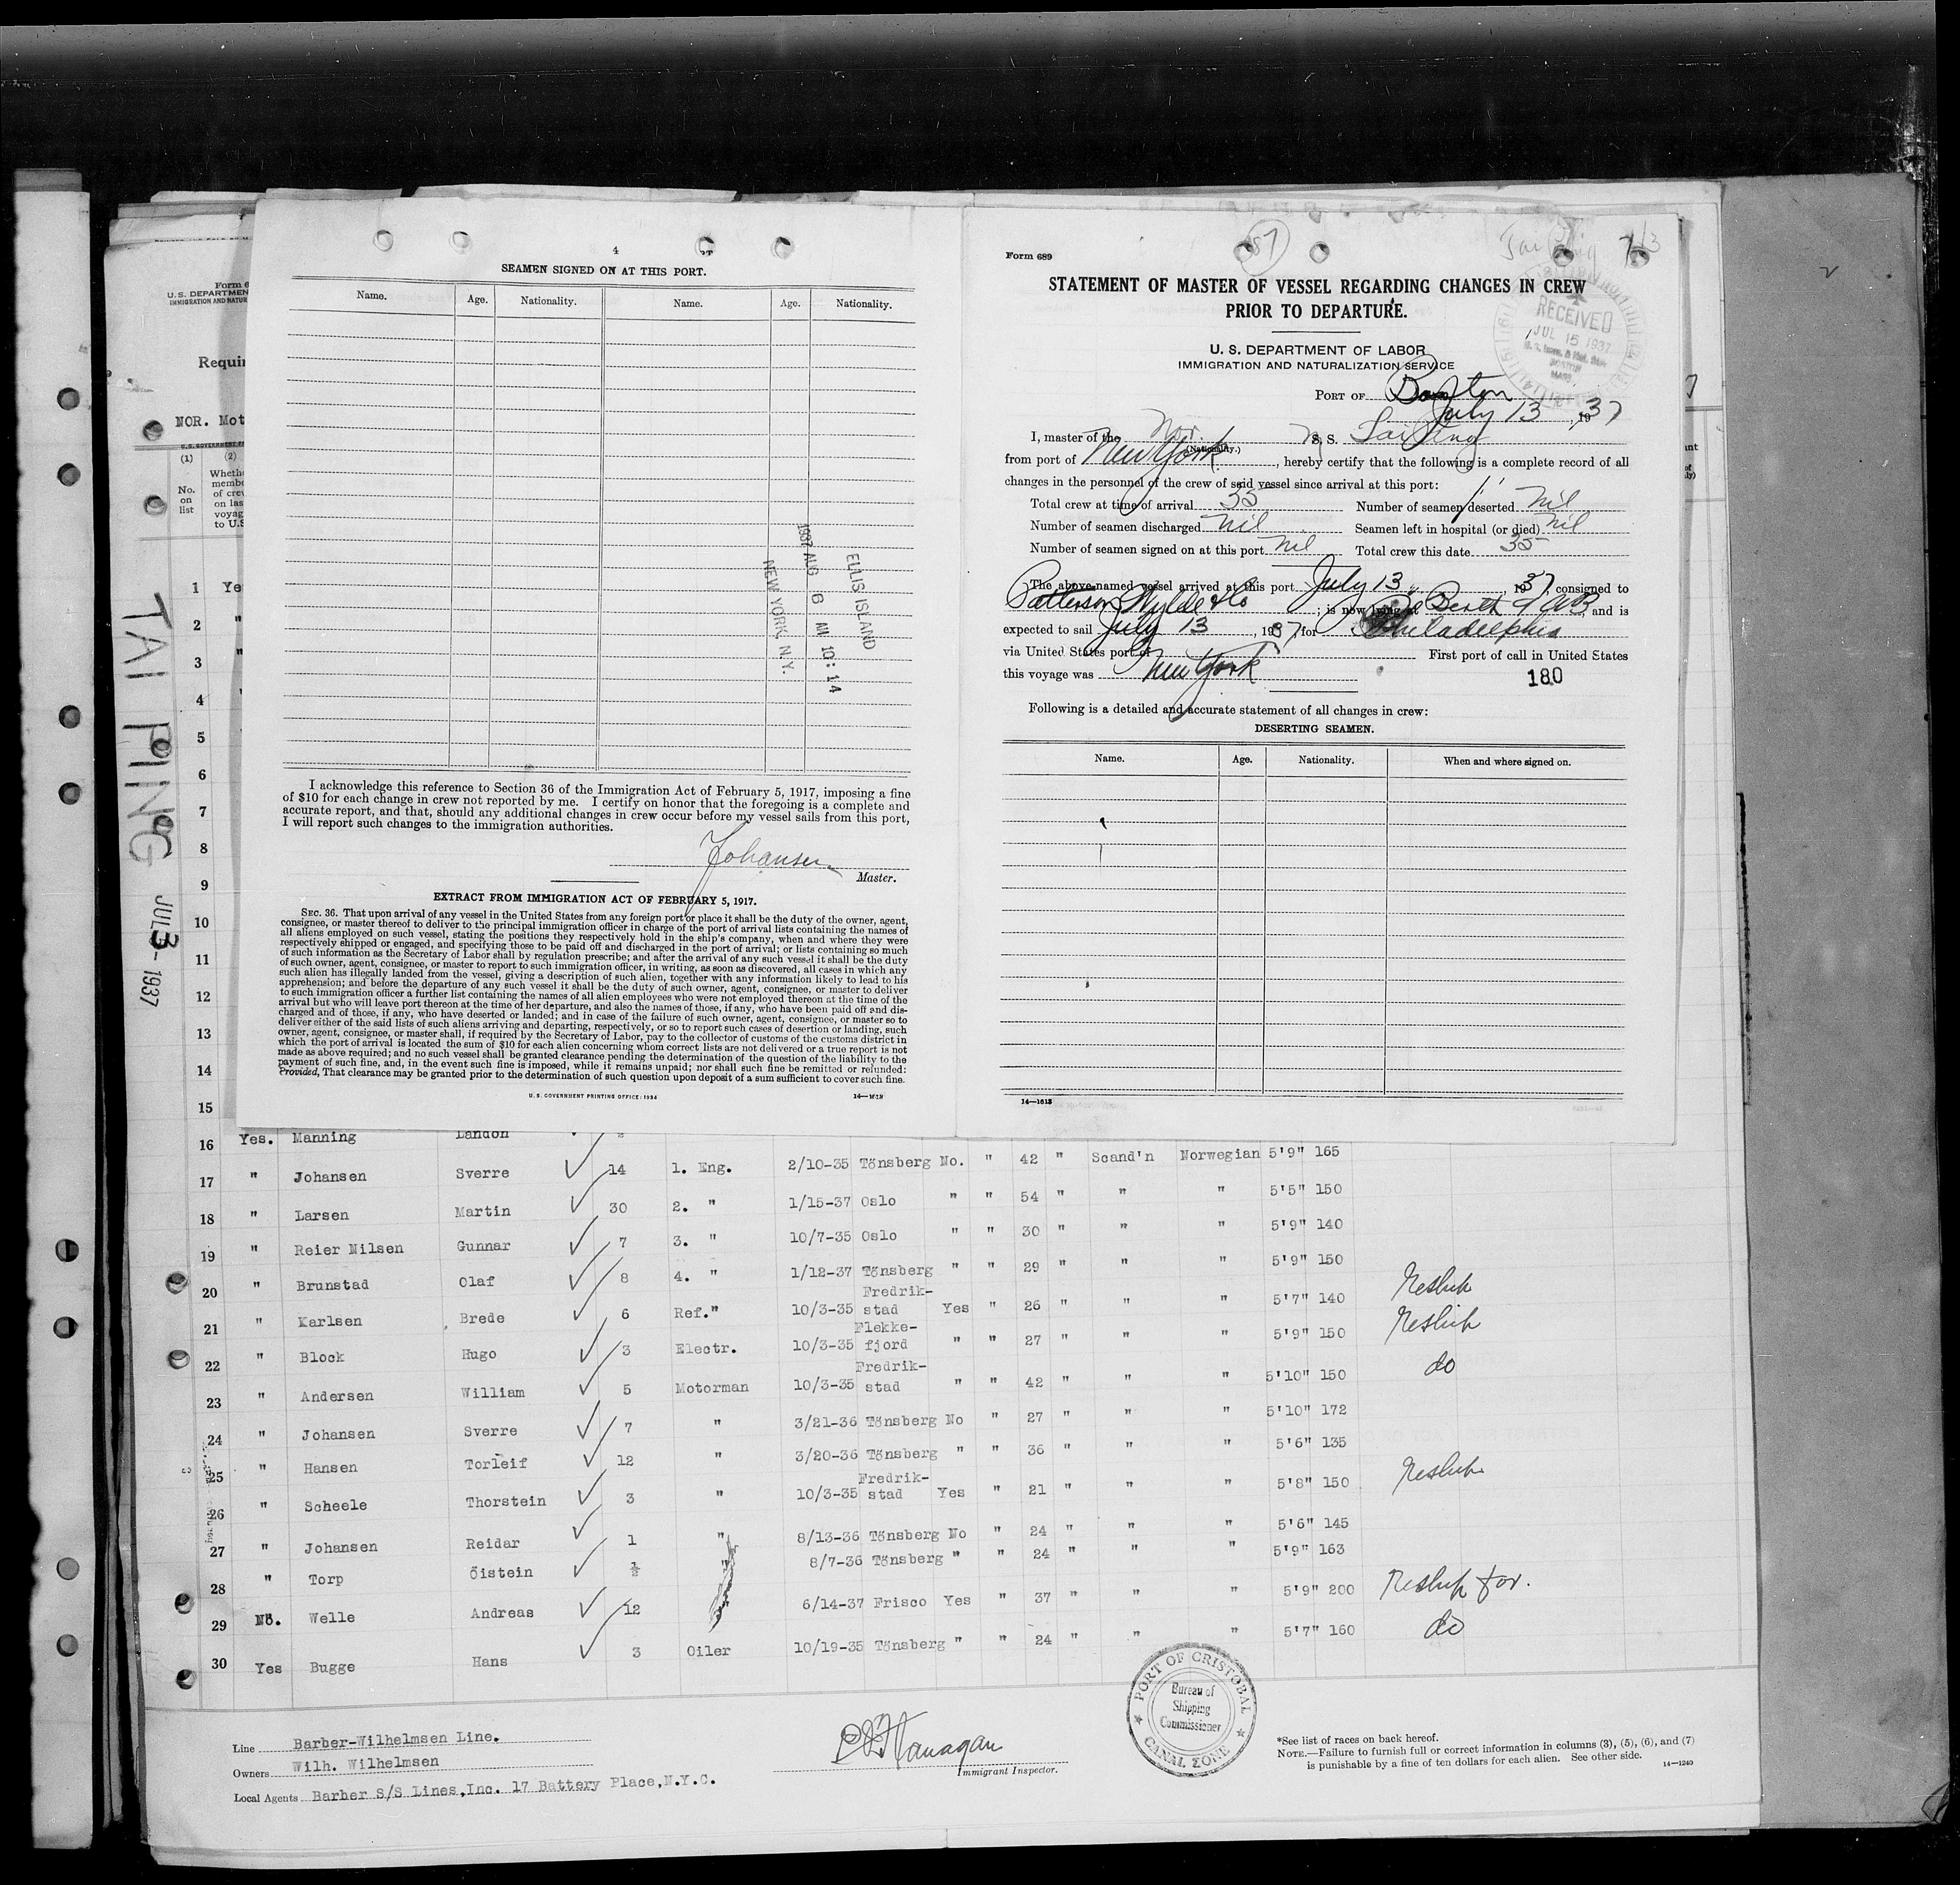 4
SEAMEN SIGNED ON AT THIS PORT.
Name. Age. Nationality. Name. Age. Nationality.
ELLIS ISLAND
1937 AUG 6 AM 10:14
NEW YORK, N.Y.
I acknowledge this reference to Section 36 of the Immigration Act of February 5, 1917, imposing a fine
of $10 for each change in crew not reported by me. I certify on honor that the foregoing is a complete and
accurate report, and that, should any additional changes in crew occur before my vessel sails from this port,
I will report such changes to the immigration authorities.
Johansen
Master.
EXTRACT FROM IMMIGRATION ACT OF FEBRUARY 5, 1917.
SEC. 36. That upon arrival of any vessel in the United States from any foreign port or place it shall be the duty of the owner, agent,
consignee, or master thereof to deliver to the principal immigration officer in charge of the port of arrival lists containing the names of
all aliens employed on such vessel, stating the positions they respectively hold in the ship's company, when and where they were
respectively shipped or engaged, and specifying those to be paid off and discharged in the port of arrival; or lists containing so much
of such information as the Secretary of Labor shall by regulation prescribe; and after the arrival of any such vessel it shall be the duty
of such owner, agent, consignee, or master to report to such immigration officer, in writing, as soon as discovered, all cases in which any
such alien has illegally landed from the vessel, giving a description of such alien, together with any information likely to lead to his
apprehension; and before the departure of any such vessel it shall be the duty of such owner, agent, consignee, or master to deliver
to such immigration officer a further list containing the names of all alien employees who were not employed thereon at the time of the
arrival but who will leave port thereon at the time of her departure, and also the names of those, if any, who have been paid off and dis-
charged and of those, if any, who have deserted or landed; and in case of the failure of such owner, agent, consignee, or master so to
deliver either of the said lists of such aliens arriving and departing, respectively, or so to report such cases of desertion or landing, such
owner, agent, consignee, or master shall, if required by the Secretary of Labor, pay to the collector of customs of the customs district in
which the port of arrival is located the sum of $10 for each alien concerning whom correct lists are not delivered or a true report is not
made as above required; and no such vessel shall be granted clearance pending the determination of the question of the liability to the
payment of such fine, and, in the event such fine is imposed, while it remains unpaid; nor shall such fine be remitted or refunded:
Provided, That clearance may be granted prior to the determination of such question upon deposit of a sum sufficient to cover such fine.
U. S. GOVERNMENT PRINTING OFFICE: 1934
Form 689
87
Tai Ping 7/13
STATEMENT OF MASTER OF VESSEL REGARDING CHANGES IN CREW
PRIOR TO DEPARTURE.
RECEIVED
JUL 15 1937
BOSTON
MASS.
U. S. DEPARTMENT OF LABOR
IMMIGRATION AND NATURALIZATION SERVICE
PORT OF Boston
July 13, 1937
I, master of the Nor. S. S. Tai Ping
(Nationality.)
from port of New York, hereby certify that the following is a complete record of all
changes in the personnel of the crew of said vessel since arrival at this port:
Total crew at time of arrival 35 Number of seamen deserted Nil
Number of seamen discharged Nil Seamen left in hospital (or died) Nil
Number of seamen signed on at this port Nil Total crew this date 35
The above-named vessel arrived at this port July 13, 1937, consigned to
Patterson Wylde & Co; is now lying at Berth 9 AB, and is
expected to sail July 13, 1937, for Philadelphia
via United States port of First port of call in United States
this voyage was New York
180
Following is a detailed and accurate statement of all changes in crew:
DESERTING SEAMEN.
Name. Age. Nationality. When and where signed on.
14—1613
Form 6
U. S. DEPARTMEN
IMMIGRATION AND NATUR
Requir
NOR. Mot
(1) (2)
No. on list
Wheth
memb
of crew
on las
voyag
to U.S
TAI PING JUL 3 - 1937
1 Ye
2 "
3 "
4
5
6
7
8
9
10
11
12
13
14
15
16 Yes. Manning Landon
17 " Johansen Sverre 14 1. Eng. 2/10-35 Tönsberg No. " 42 " Scand'n Norwegian 5'9" 165
18 " Larsen Martin 30 2. " 1/15-37 Oslo " " 54 " " " 5'5" 150
19 " Reier Nilsen Gunnar 7 3. " 10/7-35 Oslo " " 30 " " " 5'9" 140
20 " Brunstad Olaf 8 4. " 1/12-37 Tönsberg " " 29 " " " 5'9" 150
21 " Karlsen Brede 6 Ref." 10/3-35 Fredrik-stad Yes " 26 " " " 5'7" 140 Reship
22 " Block Hugo 3 Electr. 10/3-35 Flekke-fjord " " 27 " " " 5'9" 150 Reship
23 " Andersen William 5 Motorman 10/3-35 Fredrik-stad " " 42 " " " 5'10" 150 do
24 " Johansen Sverre 7 " 3/21-36 Tönsberg No " 27 " " " 5'10" 172
25 " Hansen Torleif 12 " 3/20-36 Tönsberg " " 36 " " " 5'6" 135
26 " Scheele Thorstein 3 " 10/3-35 Fredrik-stad Yes " 21 " " " 5'8" 150 Reship
27 " Johansen Reidar 1 " 8/13-36 Tönsberg No " 24 " " " 5'6" 145
28 " Torp Öistein ½ " 8/7-36 Tönsberg " " 24 " " " 5'9" 163
29 No. Welle Andreas 12 6/14-37 Frisco Yes " 37 " " " 5'9" 200 Reship for.
30 Yes Bugge Hans 3 Oiler 10/19-35 Tönsberg " " 24 " " " 5'7" 160 do
Line Barber-Wilhelmsen Line.
Owners Wilh. Wilhelmsen
Local Agents Barber S/S Lines,Inc. 17 Battery Place,N.Y.C.
Flanagan
Immigrant Inspector.
PORT OF CRISTOBAL
Bureau of
Shipping
Commissioner
CANAL ZONE
*See list of races on back hereof.
NOTE.—Failure to furnish full or correct information in columns (3), (5), (6), and (7)
is punishable by a fine of ten dollars for each alien. See other side.
14—1240